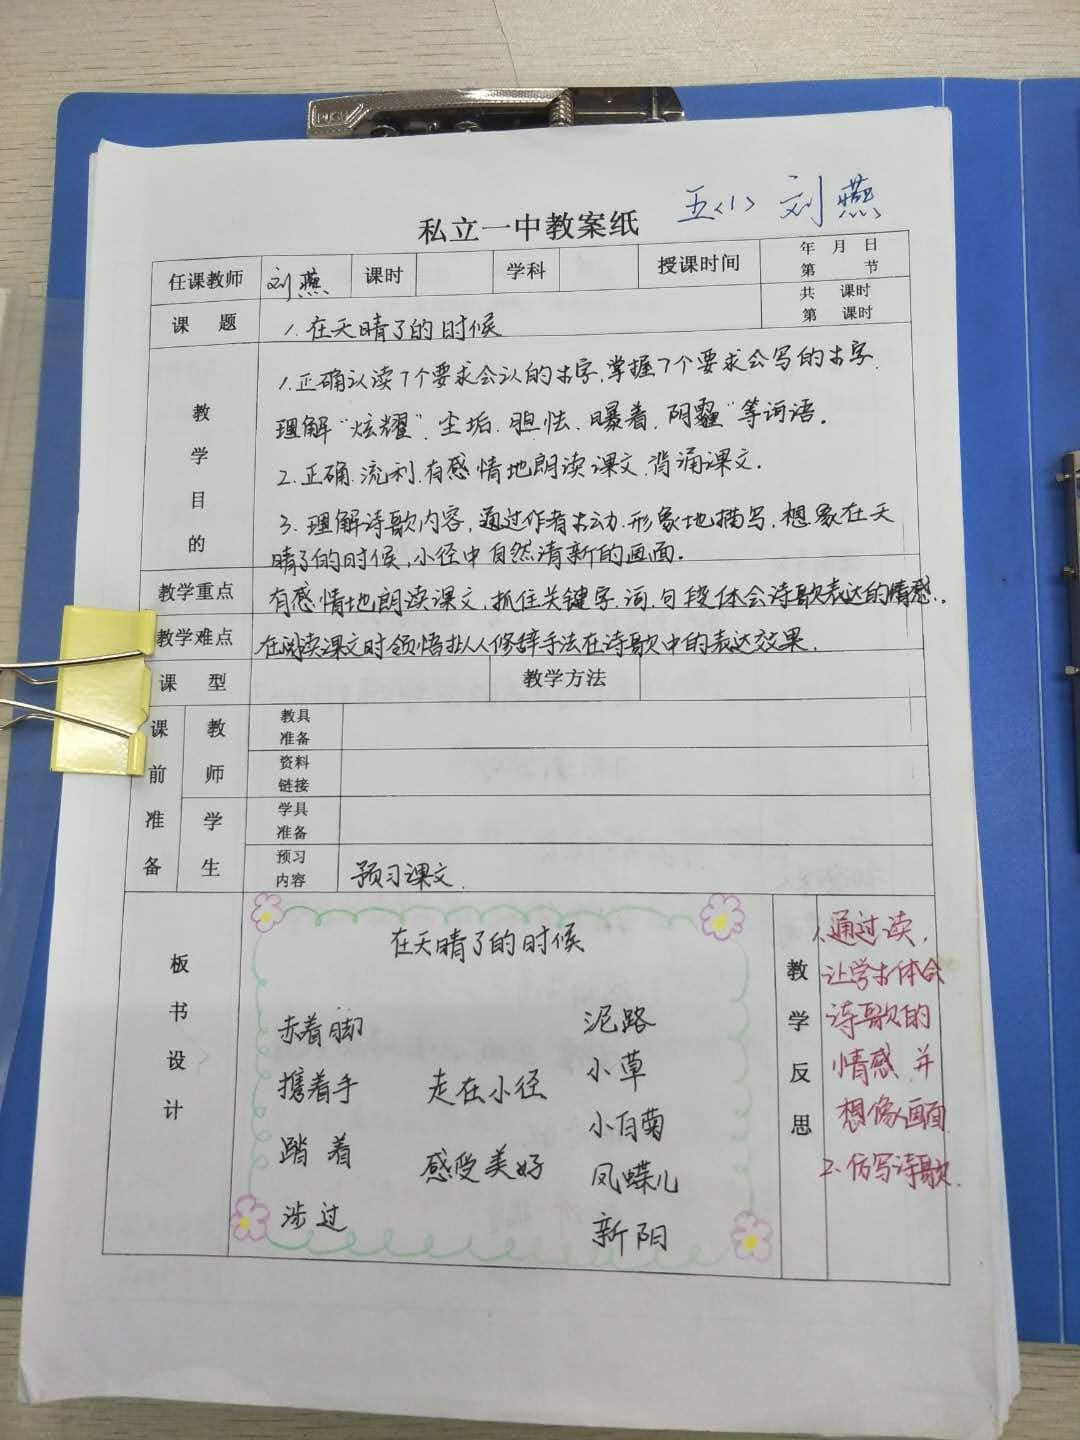 五<1> 刘燕
私立一中教案纸
任课教师 刘燕 课时 学科 授课时间 年 月 日
第 节
课 题 1.在天晴了的时候 共 课时
第 课时
教学目的
1.正确认读7个要求会认的生字,掌握7个要求会写的生字.
理解“炫耀”、尘垢、胆怯、曝着、阴霾”等词语。
2.正确.流利.有感情地朗读课文.背诵课文.
3.理解诗歌内容,通过作者生动.形象地描写,想象在天
晴了的时候,小径中自然清新的画面.
教学重点 有感情地朗读课文,抓住关键字.词.句段体会诗歌表达的情感.
教学难点 在阅读课文时领悟拟人修辞手法在诗歌中的表达效果.
课 型 教学方法
课前准备
教师 教具准备
资料链接
学生 学具准备
预习内容 预习课文.
板书设计
在天晴了的时候
赤着脚 泥路
携着手 走在小径 小草
踏着 小白菊
感受美好 凤蝶儿
涉过 新阳
教学反思
1.通过读,
让学生体会
诗歌的
情感.并
想像画面
2.仿写诗歌.